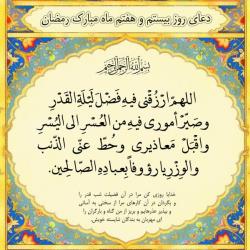 دعای روز بیستم و هفتم ماه مبارک رمضان
بسم الله الرحمن الرحیم
اللهم ارْزُقْنی فیهِ فَضْلَ لَیْلَةِ القَدْرِ
وصَیّرْ أموری فیهِ من العُسْرِ الی الیُسْرِ
واقْبَلْ مَعاذیری وحُطّ عنّی الذّنب
والوِزْرِ یا رؤوفاً بِعبادِهِ الصّالِحین.
خدایا روزی کن مرا در آن فضیلت شب قدر را
و بگردان در آن کارهای مرا از سختی به آسانی
و بپذیر عذرهایم و بریز از من گناه و بارگران را
ای مهربان به بندگان شایسته خویش.